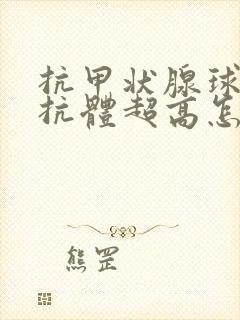 抗甲状腺球
抗體超高怎
熊罡